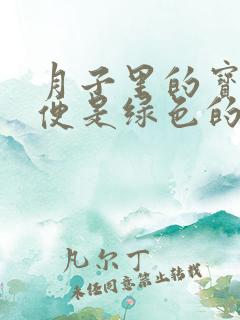 月子里的寶
便是绿色的
凡尔丁
未经同意禁止转载